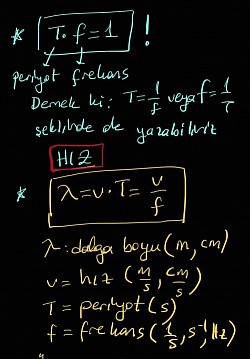 * T.f=1 !
periyot frekans
Demek ki: T=1/f veya f=1/T
şeklinde de yazabiliriz
HIZ
* λ=v.T=v/f
λ: dalga boyu (m, cm)
v = hız (m/s, cm/s)
T = periyot (s)
f = frekans (1/s, s⁻¹, Hz)